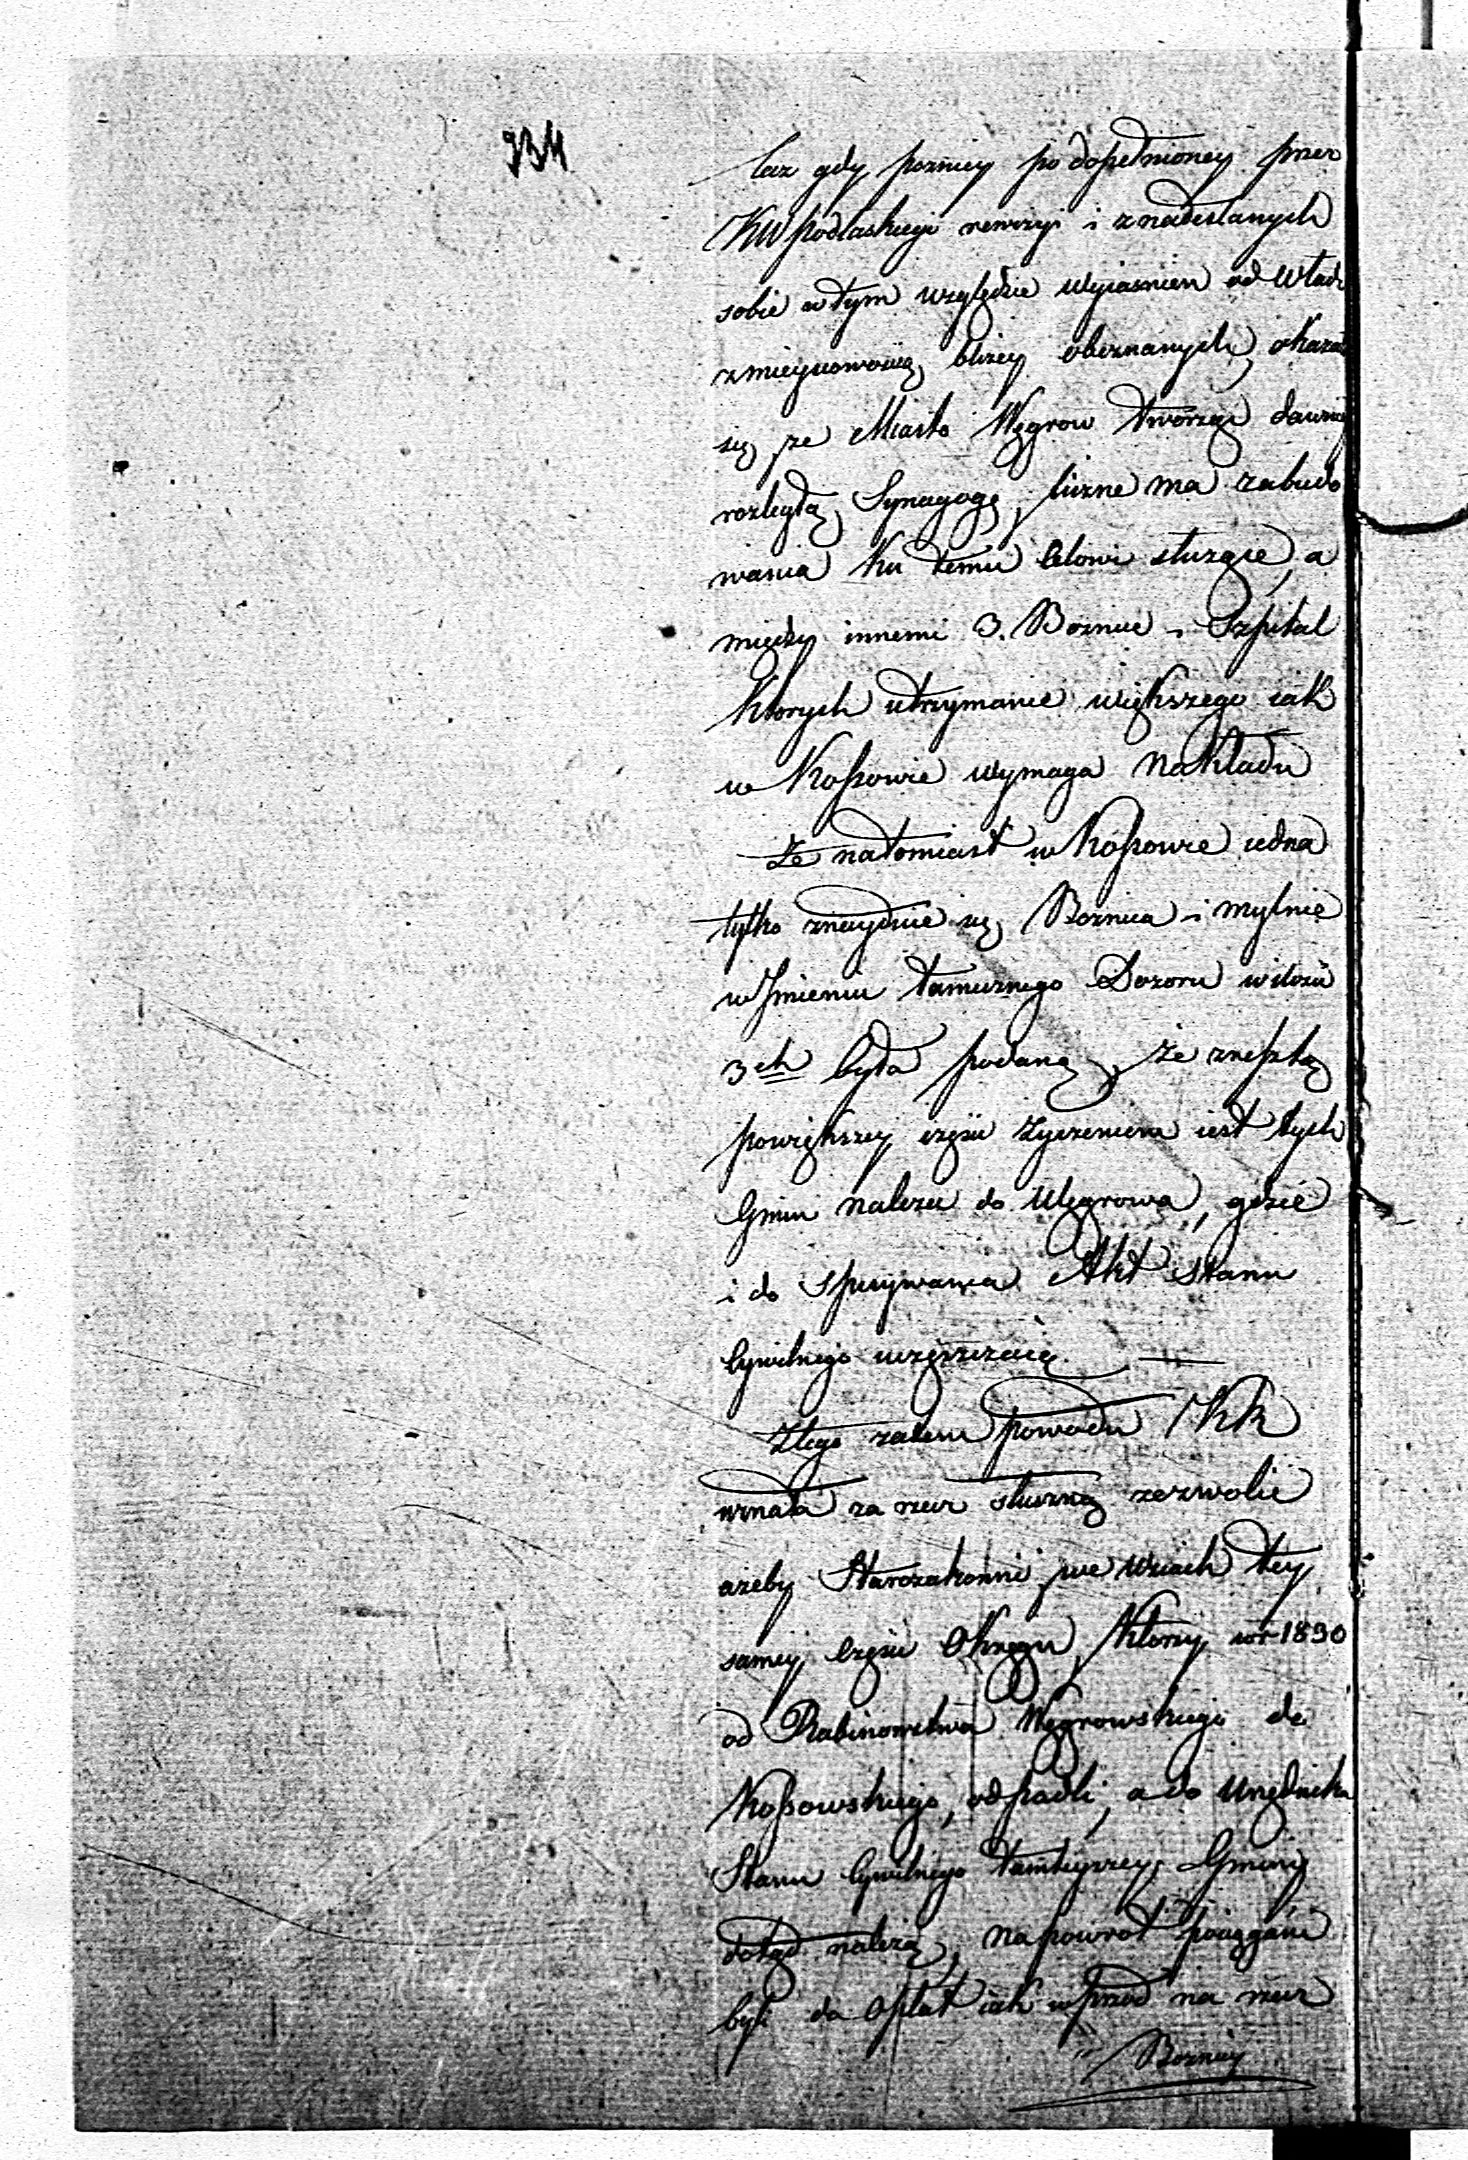 234
lecz gdy pozniey po dopełnioney przez
KWPodlaskiego rewizyi i z nadesłanych
sobie w tym względzie wyiasnien od Władz
z mieyscowością bliżey obeznanych, okazało
się, że Miasto Węgrow tworząc dawniey
rozległą Synagogę, liczne ma zabudo
wania ku temu celowi służące, a
między innemi 3. Boznice i Szpital
ktorych utrzymanie większego iak
w Kossowie wymaga nakładu
Że natomiast w Kossowie iedna
tylko znayduie się Boznica i mylnie
w Imieniu tamecznego Dozoru w ilości
3ch była podaną, że zresztą
powiększey części życzeniem iest tych
Gmin należeć do Węgrowa, gdzie
i do spisywania Akt Stanu
Cywilnego uczęszczaią.
Z tego zatem powodu KR
uznała za rzecz słuszną zezwolić
ażeby Starozakonni we wsiach tey
samey części Okręgu, ktorzy w r 1830
od Rabinowstwa Węgrowskiego do
Kossowskiego, odpadli, a do Urzędnika
Stanu Cywilnego tamteyszey Gminy
dotąd należą, napowrot pociągani
byli do Opłat iak wprzod na rzecz
Boznicy